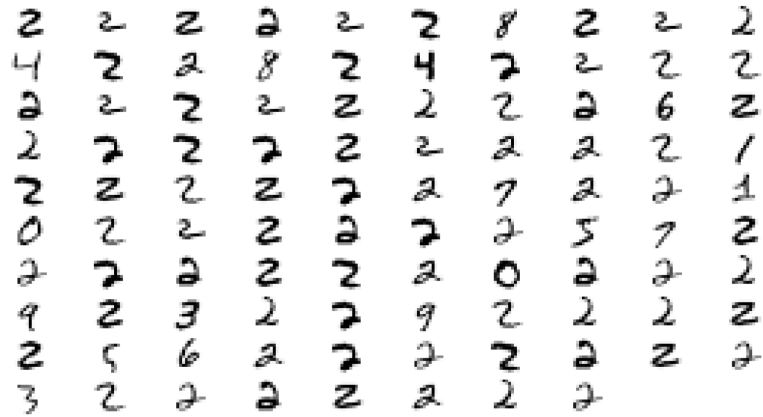 2 2 2 2 2 2 8 2 2 2
4 2 2 8 2 4 2 2 2 2
2 2 2 2 2 2 2 2 6 2
2 2 2 2 2 2 2 2 2 1
2 2 2 2 2 2 7 2 2 1
0 2 2 2 2 2 2 5 7 2
2 2 2 2 2 2 0 2 2 2
9 2 3 2 2 9 2 2 2 2
2 5 6 2 2 2 2 2 2 2
3 2 2 2 2 2 2 2